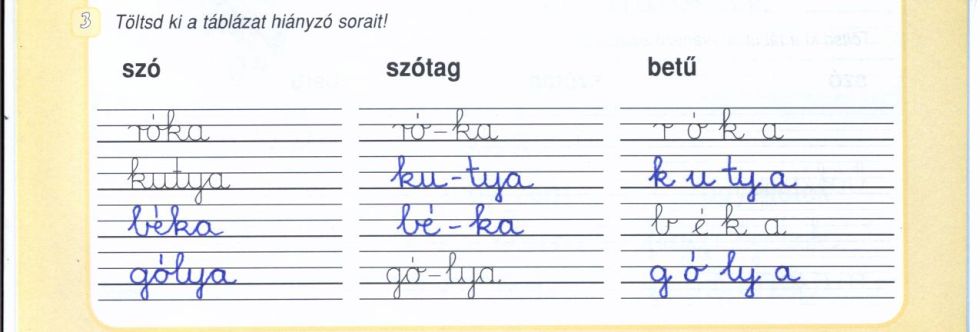 3 Töltsd ki a táblázat hiányzó sorait!
szó szótag betű
róka ró-ka r ó k a
kutya ku-tya k u ty a
béka bé-ka b é k a
gólya gó-lya g ó ly a